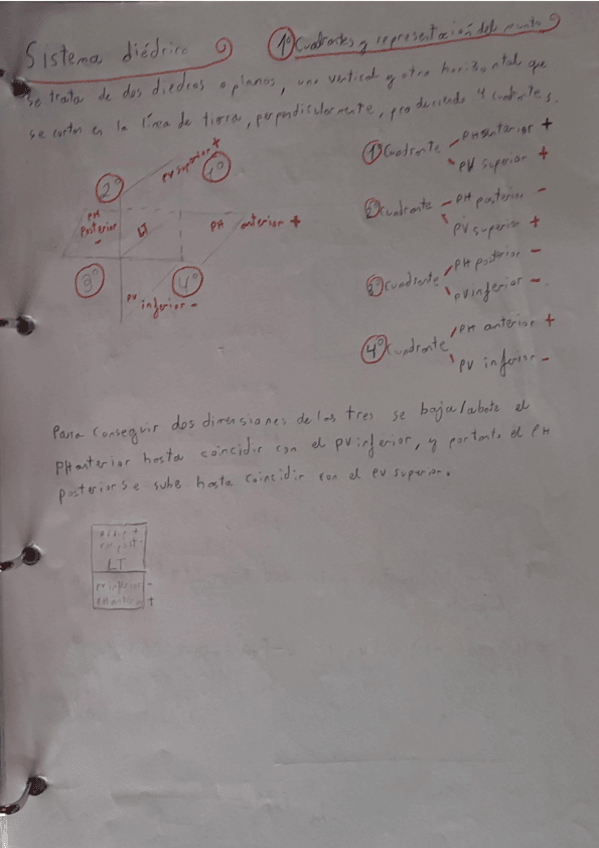 Sistema diédrico
1º Cuadrantes y representación del punto
Se trata de dos diedros o planos, uno vertical y otro horizontal que
se cortan en la línea de tierra, perpendicularmente, produciendo 4 cuadrantes.
1º Cuadrante PH anterior +
PV superior +
2º Cuadrante PH posterior -
PV superior +
3º Cuadrante PH posterior -
PV inferior -
4º Cuadrante PH anterior +
PV inferior -
PV superior +
1º
2º
PH
Posterior
-
LT
PH anterior +
3º
4º
PV
inferior -
Para conseguir dos dimensiones de las tres se baja/abate el
PH anterior hasta coincidir con el PV inferior, y por tanto el PH
posterior se sube hasta coincidir con el PV superior.
LT
PV inferior -
+